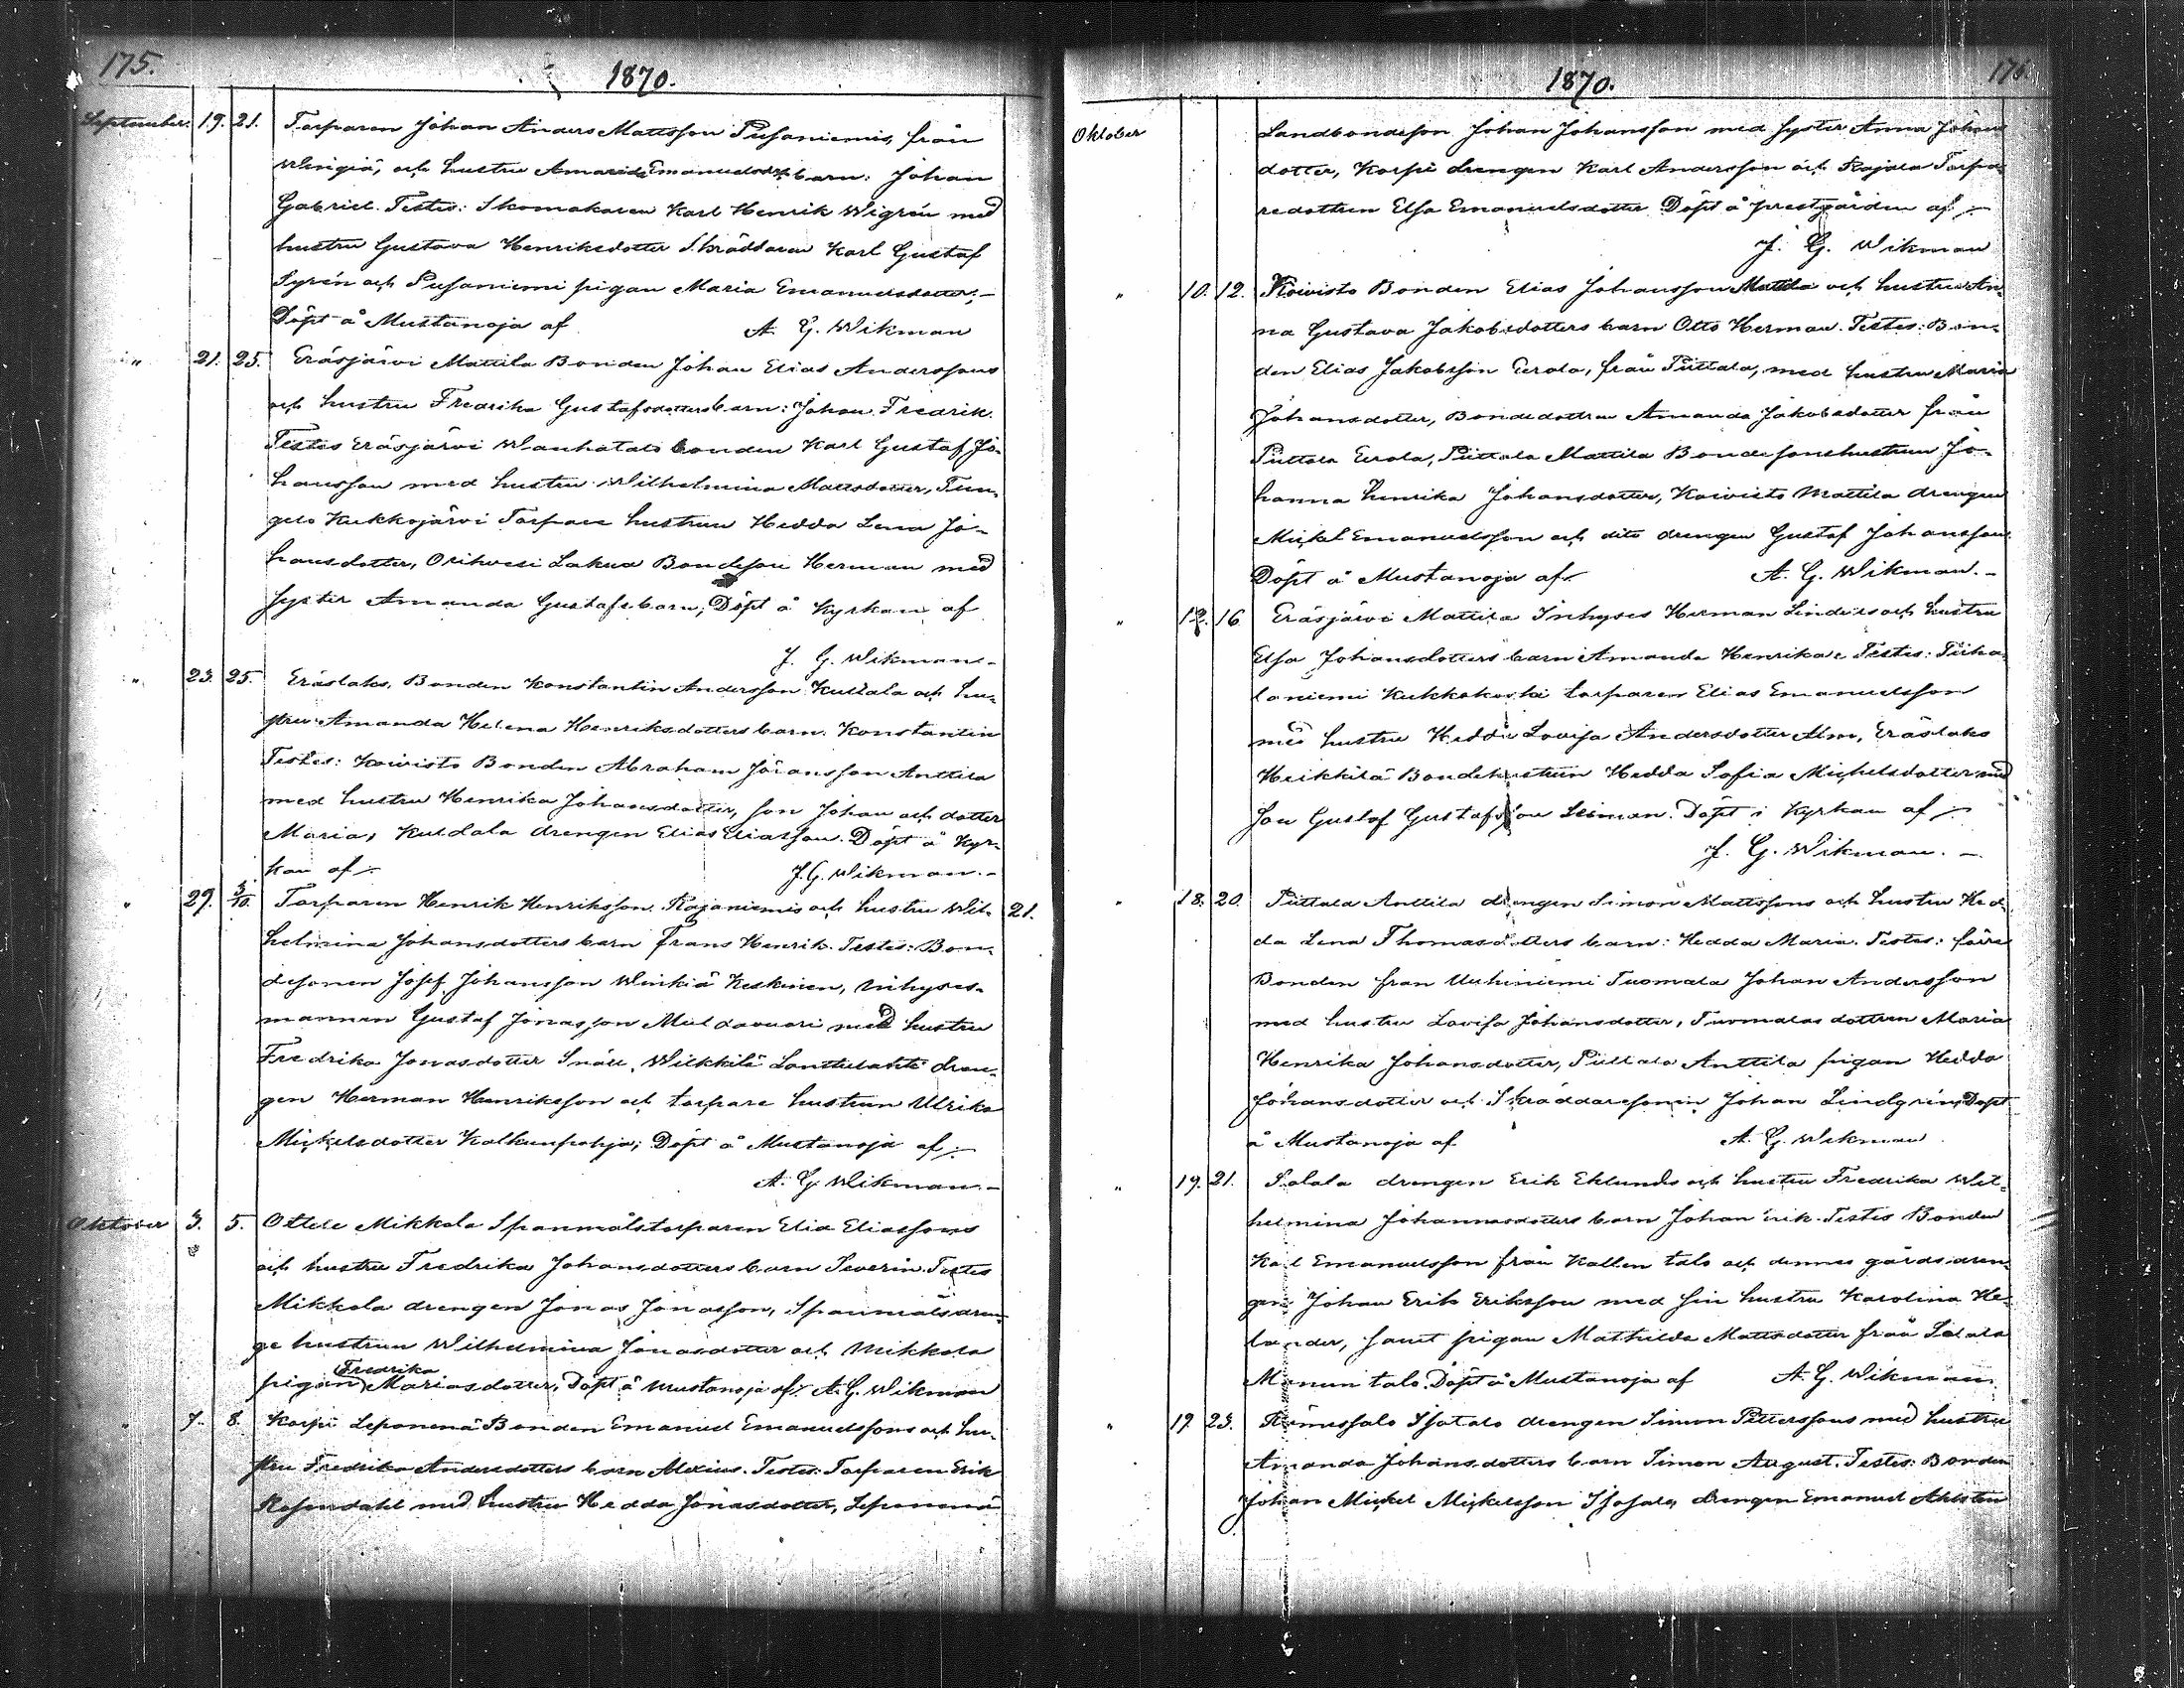 175.
1870.
September. 19. 21. Torparen Johan Anders Mattsson Pusaniemis, från
Wengiä, och hustru Amanda Emanuelsdotts barn: Johan
Gabriel. Testes: Skomakaren Karl Henrik Wigrén med
hustru Gustava Henriksdotter Skräddaren Karl Gustaf
Syrén och Pusaniemi pigan Maria Emanuelsdotter,-
Döpt å Mustanoja af A. G. Wikman
" 21. 25. Eräsjärvi Mattila Bonden Johan Elias Anderssons
och hustru Fredrika Gustafsdotters barn: Johan Fredrik.
Testes Eräsjärvi Wanhatalo bonden Karl Gustaf Jo-
hansson med hustru Wilhelmina Mattsdotter,
Kukkojärvi Torpare hustrun Hedda Lena Jo-
hansdotter, Orihvesi Lakua Bondeson Herman med
syster Amanda Gustafsbarn; Döpt å Kyrkan af
J. G. Wikman-
" 23. 25. Eräslaks, Bonden Konstantin Andersson Kuldala och hu-
stru Amanda Helena Henriksdotters barn. Konstantin
Testes: Koivisto Bonden Abraham Jöransson Anttila
med hustru Henrika Johansdotter, son Johan och dotter
Maria, Kuldala drengen Elias Eliasson. Döpt å Kyr-
kan af J. G. Wikman.-
" 29. 3/10. Torparen Henrik Henriksson Rajaniemis och hustru Wil- 21.
helmina Johansdotters barn Frans Henrik. Testes: Bon-
desonen Josef Johansson Winkiä Keskinen, inhyses-
mannen Gustaf Jonasson Muldavuori med hustru
Fredrika Jonasdotter Snäll, Wilkkilä dren-
gen Herman Henriksson och torpare hustrun Ulrika
Michelsdotter Kalkunpohja; Döpt å Mustanoja af
A. G. Wikman.-
Oktober 3. 5. Ottele Mikkola Spanmålstorparen Elia Eliassons
och hustru Fredrika Johansdotters barn Severin. Testes
Mikkola drengen Jonas Jonasson, Spanmålsdren-
ge hustrun Wilhelmina Jonasdotter och Mikkola
Fredrika
pigan Mariasdotter, Döpt å Mustanoja af A. G. Wikman
" 7. 8. Korpi Leponenä Bonden Emanuel Emanuelssons och hu-
stru Fredrika Andersdotters barn Alexius. Testes: Torparen Erik
Rosendahl med hustru Hedda Jonasdotter, Leponenä
176.
1870.
Oktober Landbondeson Johan Johansson med syster Anna Johans
dotter, Korpi drengen Karl Andersson och Rajala Torpa-
redottren Elsa Emanuelsdotter Döpt å prestgården af
J. G. Wikman
" 10. 12. Koivisto Bonden Elias Johansson Mattila och hustru An-
na Gustava Jakobsdotters barn Otto Herman. Testes: Bon-
den Elias Jakobsson Eerola, från Püttala, med hustru Maria
Johansdotter, Bondedottren Amanda Jakobsdotter från
Püttala Eerola, Püttala Mattila Bondesonshustrun Jo-
hanna Henrika Johansdotter, Koivisto Mattila drengen
Mickel Emanuelsson och dito drengen Gustaf Johansson.
Döpt å Mustanoja af A. G. Wikman.-
" 12. 16 Eräsjärvi Mattila Inhyses Herman Lindells och hustru
Elsa Johansdotters barn Amanda Henrika. Testes: Tiiha-
laniemi Kukkokoski torparen Elias Emanuelsson
med hustru Hedda Lovisa Andersdotter Alm, Eräslaks
Heikkilä Bondehustrun Hedda Sofia Michelsdotter med
Son Gustaf Gustafsson Leiman. Döpt i Kyrkan af
J. G. Wikman.-
" 18. 20. Püttala Anttila drengen Simon Mattssons och hustru Hed-
da Lena Thomasdotters barn: Hedda Maria. Testes: förra
Bonden fran Uuhiniemi Tuomala Johan Andersson
med hustru Lovisa Johansdotter, Tuomalas dottren Maria
Henrika Johansdotter, Püttala Anttila pigan Hedda
Johansdotter och Skräddaresonen Johan Lindgrén, Döpt
å Mustanoja af A. G. Wikman
" 19. 21. Salala drengen Erik Eklunds och hustru Fredrika Wil-
helmina Johannesdotters barn Johan Erik. Testes Bonden
Karl Emanuelsson från Kallen talo och dennes gårdsdren-
gen Johan Erik Eriksson med sin hustru Karolina He-
lander, samt pigan Mathilda Mattsdotter från Salala
Mannin talo. Döpt å Mustanoja af A. G. Wikman.
" 19 23. Isotalo drengen Simon Petterssons med hustru
Amanda Johansdotters barn Simon August. Testes: Bonden
Johan Mickel Mickelsson Isotalo, drengen Emanuel Ahlsten